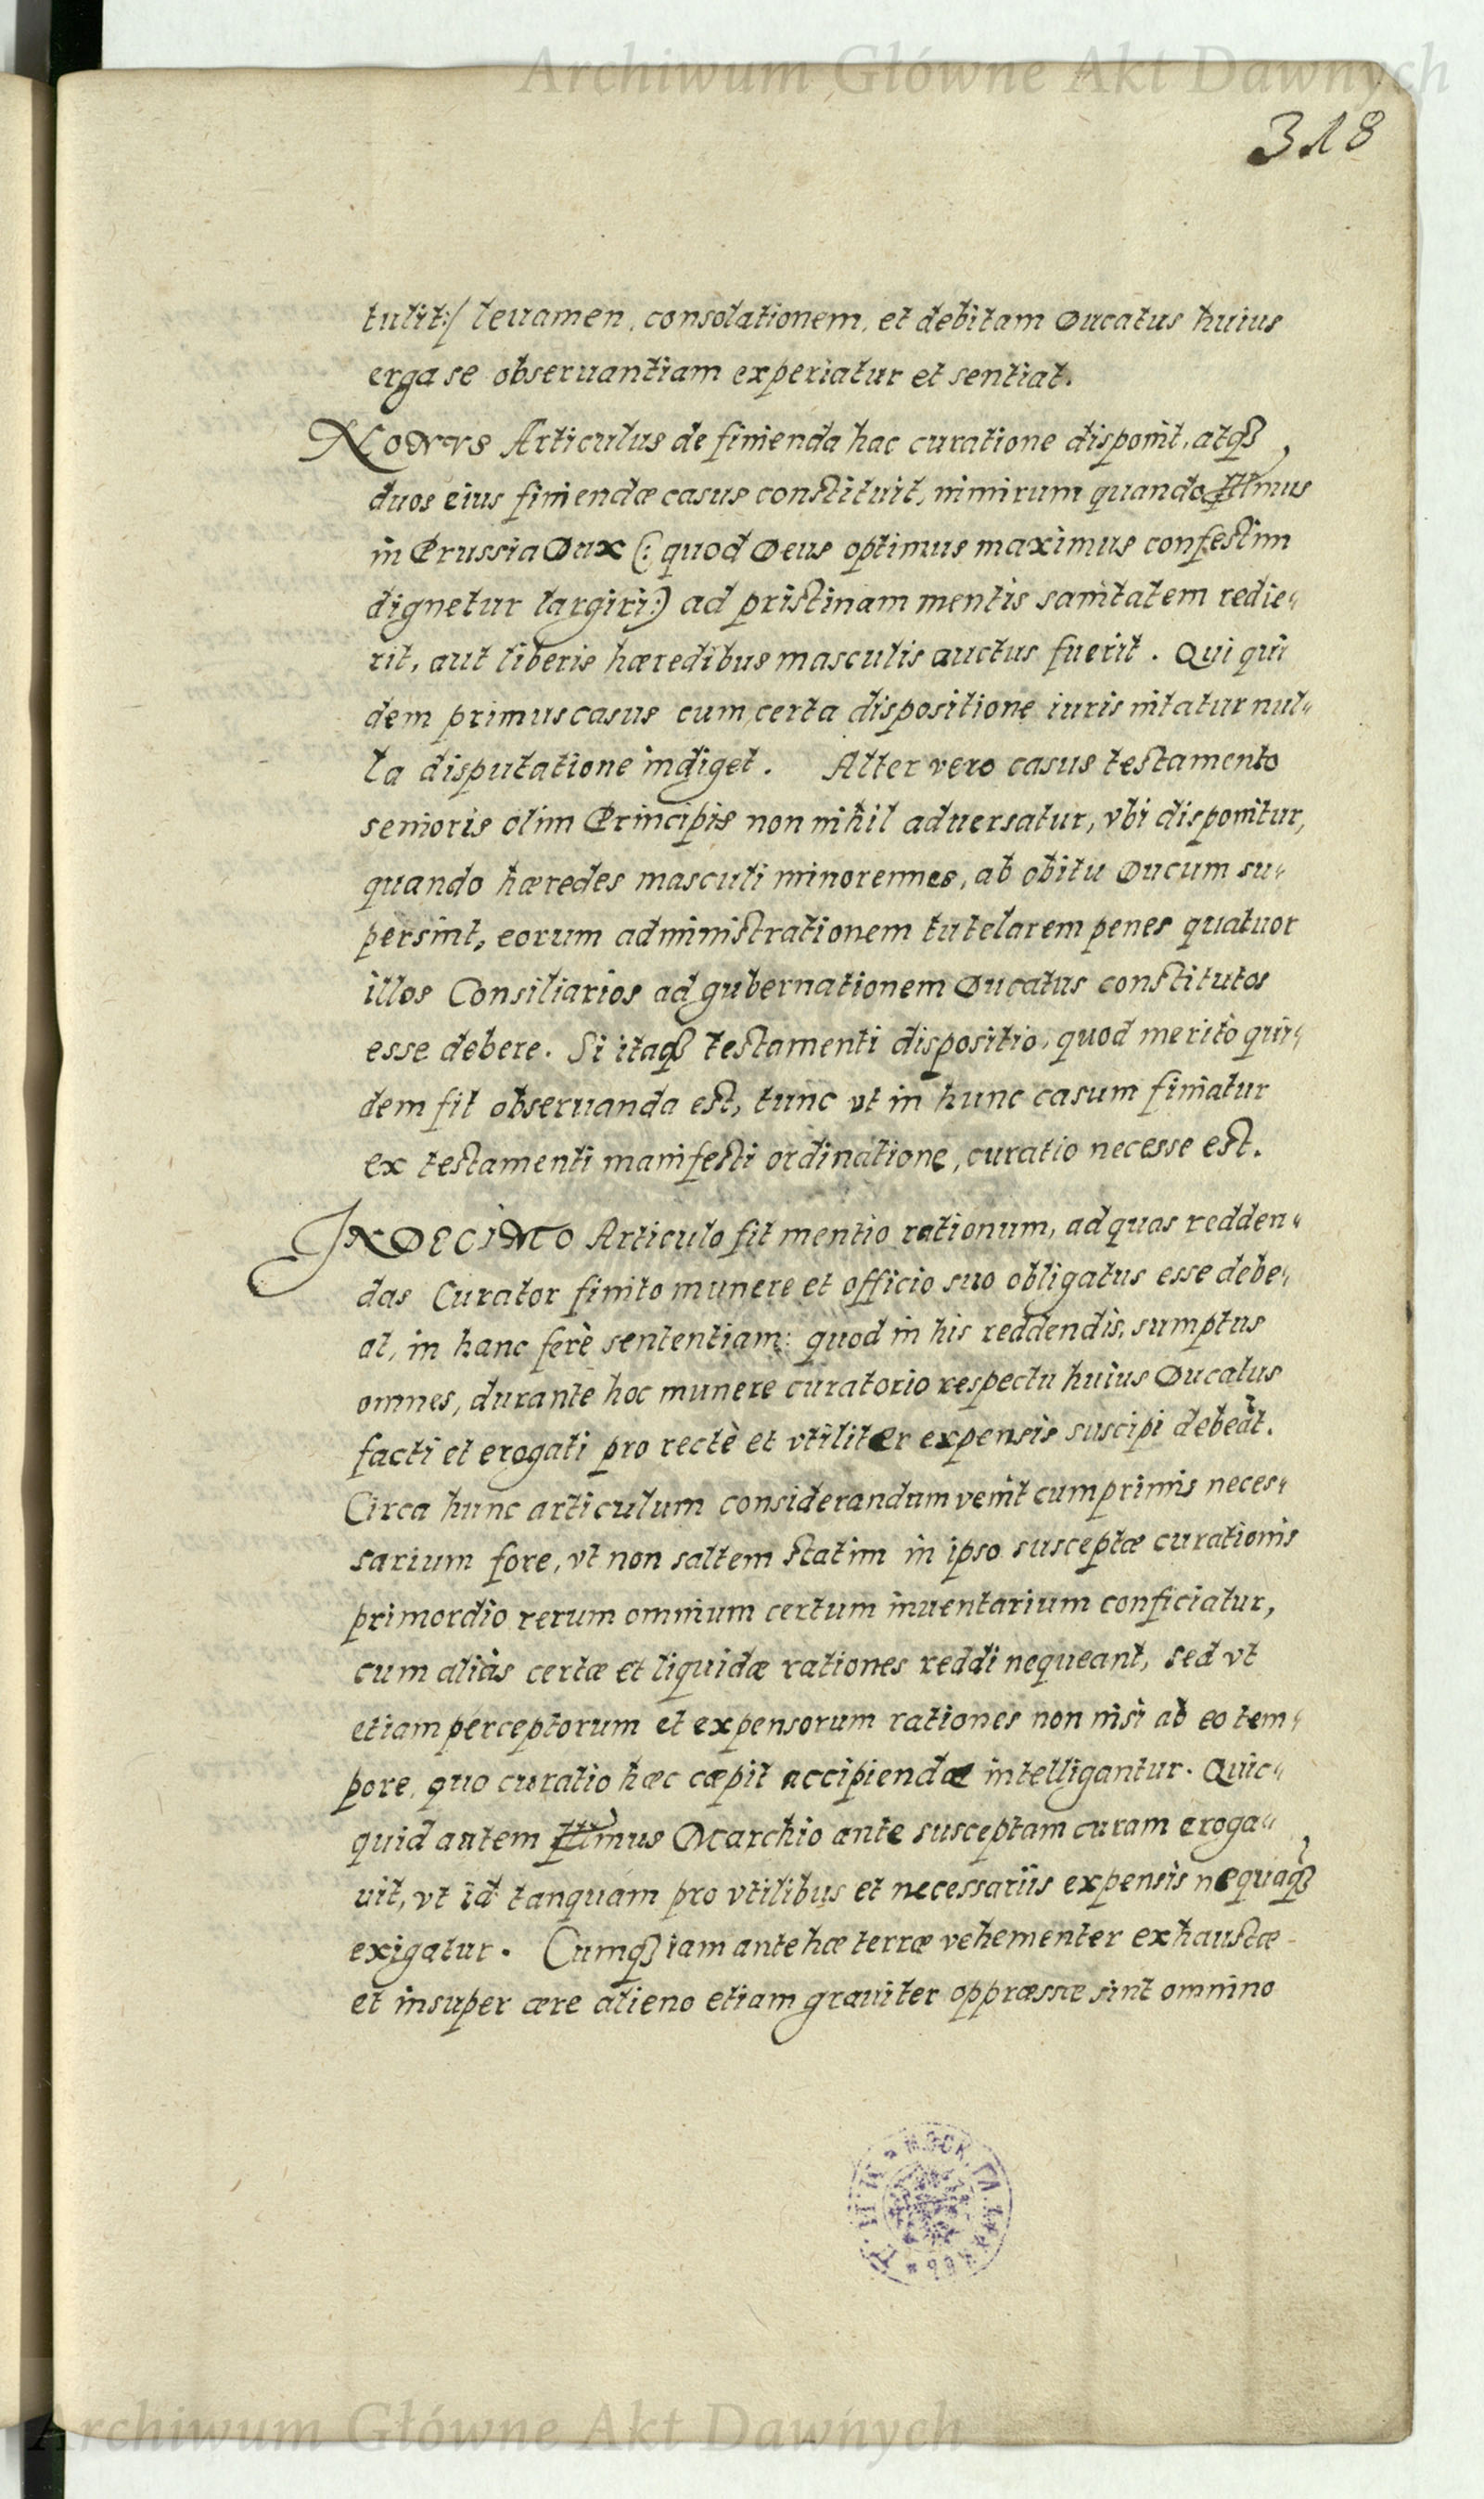 Archiwum Główne Akt Dawnych
318
tulit:/ leuamen, consolationem, et debitam Ducatus huius
erga se obseruantiam experiatur et sentiat.
NONVS Articulus de finienda hac curatione disponit, atqȝ
duos eius finiendæ casus constituit, nimirum quando Illmus
in Prussia Dux (: quod Deus optimus maximus confestim
dignetur largiri:) ad pristinam mentis sanitatem redie„
rit, aut liberis hæredibus masculis auctus fuerit. Qui qui
dem primus casus cum certa dispositione iuris nitatur nul„
la disputatione indiget. Alter vero casus testamento
senioris olim Principis non nihil aduersatur, vbi disponitur,
quando hæredes masculi minorennes, ab obitu Ducum su„
persint, eorum administrationem tutelarem penes quatuor
illos Consiliarios ad gubernationem Ducatus constitutos
esse debere. Si itaqȝ testamenti dispositio, quod meritò qui„
dem fit obseruanda est, tunc vt in hunc casum finiatur
ex testamenti manifesti ordinatione, curatio necesse est.
IN DECIMO Articulo fit mentio rationum, ad quas redden„
das Curator finito munere et officio suo obligatus esse debe„
at, in hanc ferè sententiam: quod in his reddendis, sumptus
omnes, durante hoc munere curatorio respectu huius Ducatus
facti et erogati pro rectè et vtiliter expensis suscipi debeāt.
Circa hunc articulum considerandum venit cumprimis neces„
sarium fore, vt non saltem statim in ipso susceptæ curationis
primordio rerum omnium certum inuentarium conficiatur,
cum aliàs certæ et liquidæ rationes reddi nequeant, sed vt
etiam perceptorum et expensorum rationes non nisi ab eo tem„
pore, quo curatio hæc cæpit accipiendæ intelligantur. Quic„
quid autem Illmus Marchio ante susceptam curam eroga„
uit, vt id tanquam pro vtilibus et necessariis expensis nequaqȝ
exigatur. Cumqȝ iam ante hæ terræ vehementer exhaustæ
et insuper ære alieno etiam grauiter oppræssæ sint omnino
Archiwum Główne Akt Dawnych